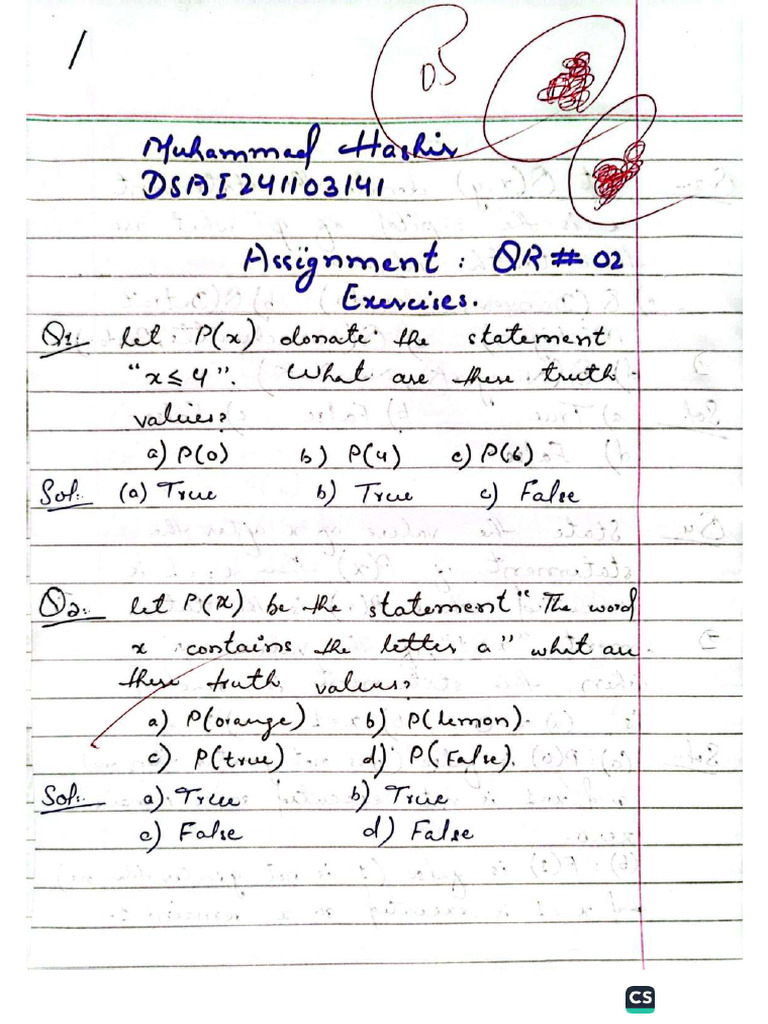 1
DS
Muhammad Hashir
DSAI241103141
Assignment : QR # 02
Exercises.
Q1:. let P(x) donate the statement
"x ≤ 4". What are these truth
values?
a) P(0) b) P(4) c) P(6)
Sol:. (a) True b) True c) False
Q2:. let P(x) be the statement "The word
x contains the letter a" whit are
these truth values?
a) P(orange) b) P(lemon).
c) P(true) d) P(False).
Sol:. a) True b) True
c) False d) False
CS